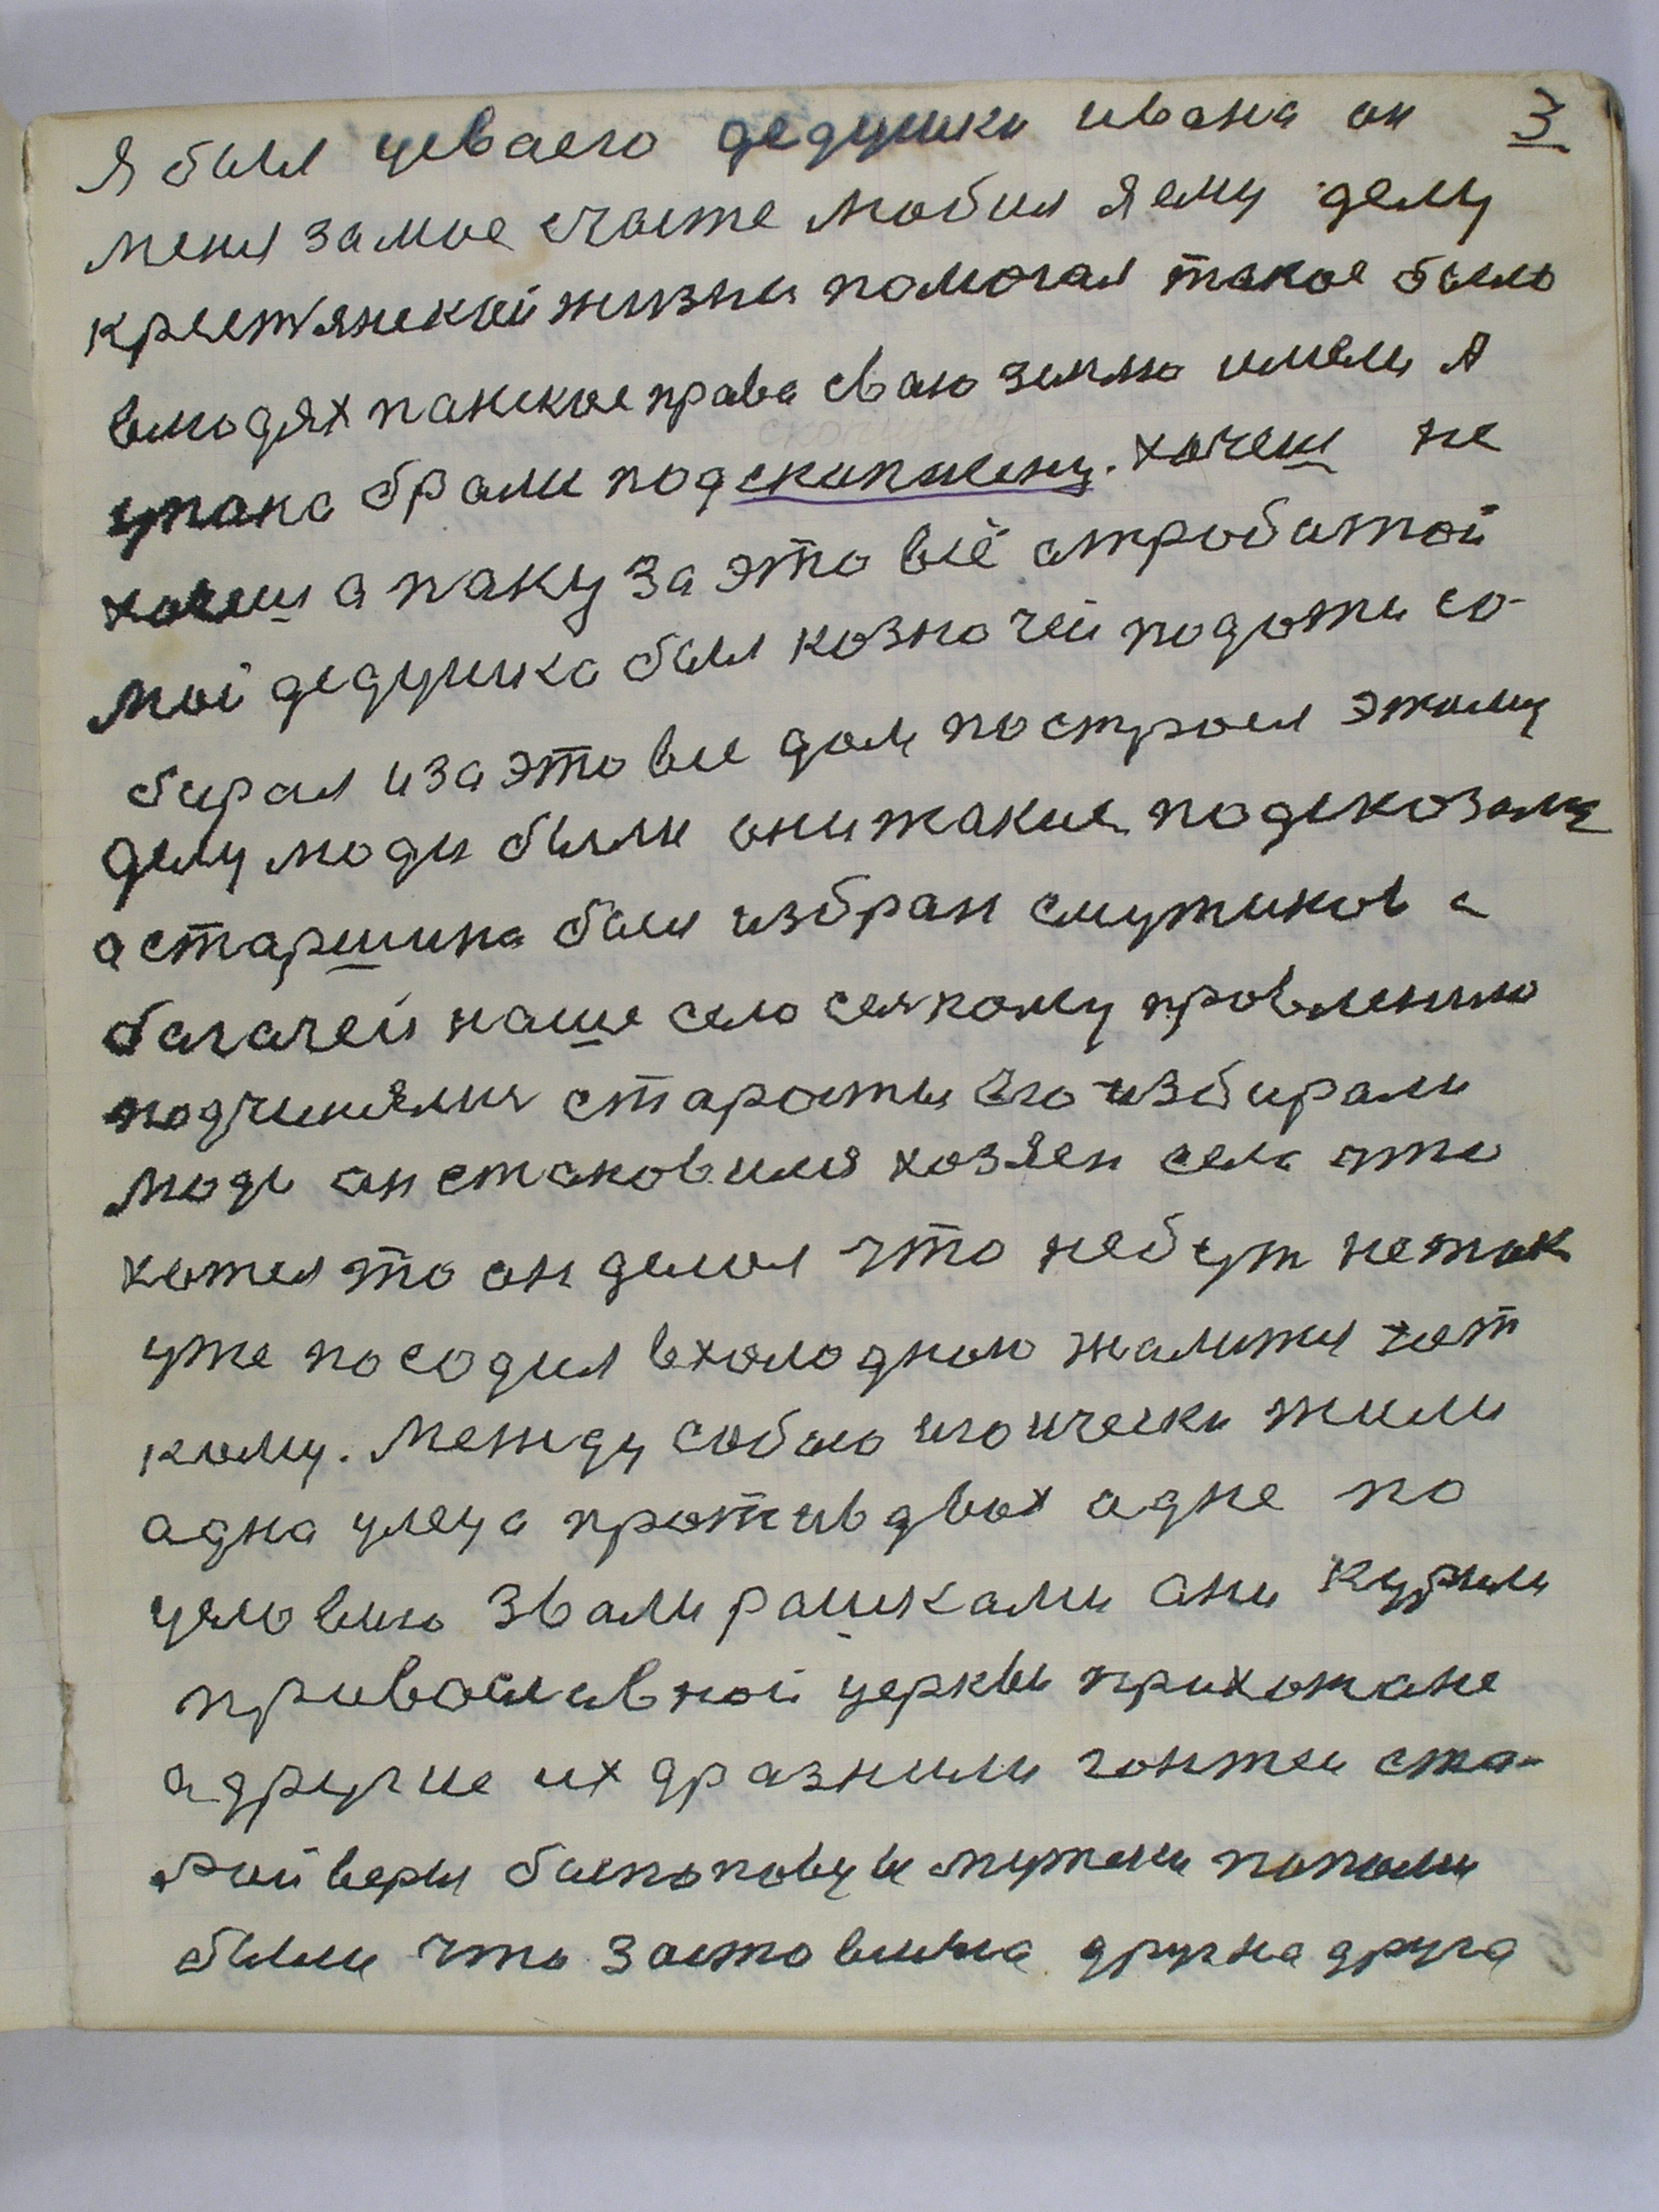 Я был усваего дедушки ивана он 3
меня замое счасте любил я ему делу
крестянской жизни помогал такое было
влюдях панское права сваю землю имели А
упана брали под скопжену. хочеш не
хочеш а пану за это всё атработой
мой дедушка был козначей подати со-
бирал иза это все дом построел этому
делу люди были они такие подсказали
а старшина был избран смутиков с
багачей наше село селкому провлению
подчинялися старосты его избирали
люди он становился хозяен села что
хател то он делал что небут нетак
уже посодил вхолодною жалится нет
кому. Между собою игоически жили
адна улеца против двох адне по
условию звали рашками ани Курили
привославной церквы прихожане
адругие их дразнили гонтеи ста-
рой веры беспоповцы и мужики попами
были что застовляла друг на друга